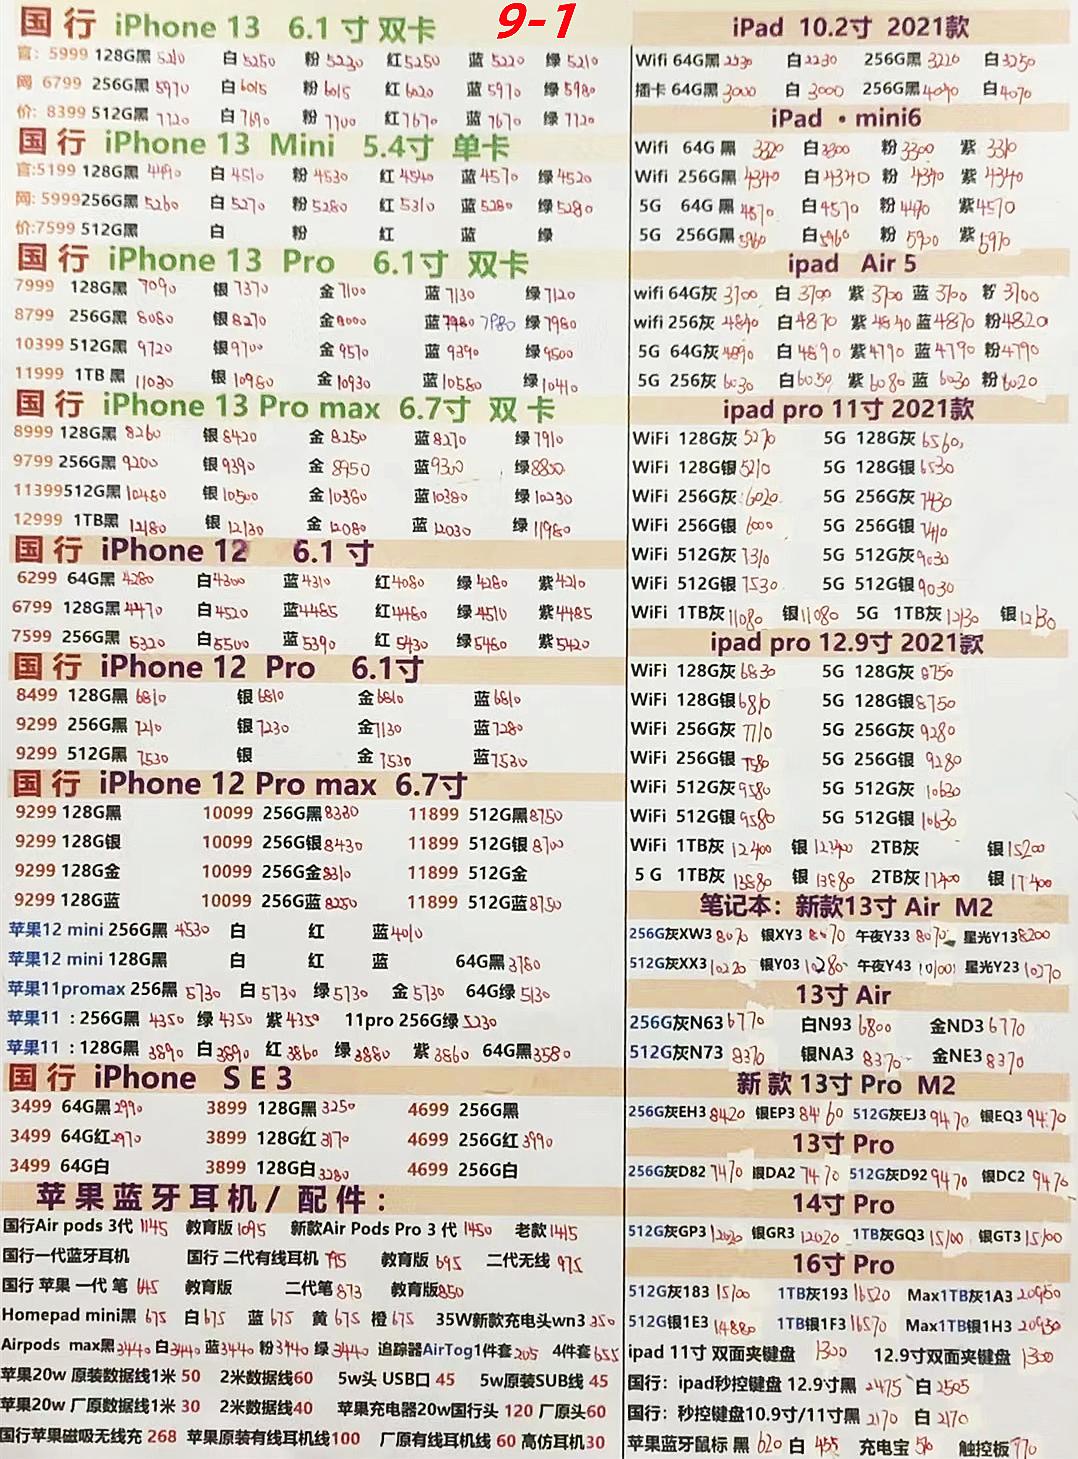 9-1
国行 iPhone 13 6.1寸 双卡
官: 5999 128G黑 5210 白 5250 粉 5230 红 5250 蓝 5220 绿 5210
网 6799 256G黑 5970 白 6015 粉 6015 红 6020 蓝 5970 绿 5980
价: 8399 512G黑 7720 白 7690 粉 7700 红 7670 蓝 7670 绿 7720
国行 iPhone 13 Mini 5.4寸 单卡
官:5199 128G黑 4490 白 4510 粉 4530 红 4540 蓝 4570 绿 4520
网: 5999256G黑 5260 白 5270 粉 5280 红 5310 蓝 5280 绿 5280
价:7599 512G黑 白 粉 红 蓝 绿
国行 iPhone 13 Pro 6.1寸 双卡
7999 128G黑 7090 银 7370 金 7100 蓝 7130 绿 7120
8799 256G黑 8080 银 8270 金 8000 蓝 7980 7980 绿 7980
10399 512G黑 9720 银 9700 金 9570 蓝 9390 绿 9500
11999 1TB 黑 11030 银 10980 金 10930 蓝 10580 绿 10410
国行 iPhone 13 Pro max 6.7寸 双卡
8999 128G黑 8260 银 8420 金 8250 蓝 8270 绿 7910
9799 256G黑 9200 银 9390 金 8950 蓝 9300 绿 8800
11399512G黑 10480 银 10500 金 10380 蓝 10380 绿 10230
12999 1TB黑 12180 银 12130 金 12080 蓝 12030 绿 11980
国行 iPhone 12 6.1寸
6299 64G黑 4280 白 4300 蓝 4310 红 4080 绿 4280 紫 4210
6799 128G黑 4470 白 4520 蓝 4485 红 4460 绿 4510 紫 4485
7599 256G黑 5320 白 5500 蓝 5390 红 5430 绿 5460 紫 5420
国行 iPhone 12 Pro 6.1寸
8499 128G黑 6810 银 6810 金 6810 蓝 6810
9299 256G黑 7210 银 7230 金 7130 蓝 7280
9299 512G黑 7530 银 金 7530 蓝 7530
国行 iPhone 12 Pro max 6.7寸
9299 128G黑 10099 256G黑 8330 11899 512G黑 8750
9299 128G银 10099 256G银 8430 11899 512G银 8700
9299 128G金 10099 256G金 8310 11899 512G金
9299 128G蓝 10099 256G蓝 8250 11899 512G蓝 8750
苹果12 mini 256G黑 4530 白 红 蓝 4010
苹果12 mini 128G黑 白 红 蓝 64G黑 3780
苹果11promax 256黑 5730 白 5730 绿 5730 金 5730 64G绿 5130
苹果11 : 256G黑 4350 绿 4350 紫 4350 11pro 256G绿 5230
苹果11 : 128G黑 3890 白 3890 红 3860 绿 3880 紫 3860 64G黑 3580
国行 iPhone SE3
3499 64G黑 2990 3899 128G黑 3250 4699 256G黑
3499 64G红 2970 3899 128G红 3170 4699 256G红 3990
3499 64G白 3899 128G白 3280 4699 256G白
苹果蓝牙耳机 / 配件 :
国行Air pods 3代 1145 教育版 1095 新款Air Pods Pro 3 代 1450 老款 1415
国行一代蓝牙耳机 国行 二代有线耳机 795 教育版 695 二代无线 975
国行 苹果 一代 笔 645 教育版 二代笔 873 教育版 850
Homepad mini黑 675 白 675 蓝 675 黄 675 橙 675 35W新款充电头wn3 350
Airpods max黑 3440 白 3440 蓝 3440 粉 3440 绿 3440 追踪器AirTog1件套 205 4件套 655
苹果20w 原装数据线1米 50 2米数据线60 5w头 USB口 45 5w原装SUB线 45
苹果20w 厂原数据线1米 30 2米数据线40 苹果充电器20w国行头 120 厂原头60
国行苹果磁吸无线充 268 苹果原装有线耳机线100 厂原有线耳机线 60 高仿耳机30
iPad 10.2寸 2021款
Wifi 64G黑 2230 白 2230 256G黑 3220 白 3250
插卡 64G黑 3000 白 3000 256G黑 4090 白 4070
iPad · mini6
Wifi 64G 黑 3320 白 3300 粉 3300 紫 3310
Wifi 256G黑 4340 白 4340 粉 4340 紫 4340
5G 64G 黑 4570 白 4570 粉 4490 紫 4570
5G 256G黑 5960 白 5960 粉 5900 紫 5970
ipad Air 5
wifi 64G灰 3700 白 3700 紫 3700 蓝 3700 粉 3700
wifi 256灰 4840 白 4870 紫 4840 蓝 4870 粉 4820
5G 64G灰 4890 白 4890 紫 4790 蓝 4790 粉 4790
5G 256灰 6030 白 6050 紫 6080 蓝 6030 粉 6020
ipad pro 11寸 2021款
WiFi 128G灰 5270 5G 128G灰 6560
WiFi 128G银 5210 5G 128G银 6530
WiFi 256G灰 6020 5G 256G灰 7430
WiFi 256G银 6000 5G 256G银 7410
WiFi 512G灰 7310 5G 512G灰 9030
WiFi 512G银 7530 5G 512G银 9030
WiFi 1TB灰 11080 银 11080 5G 1TB灰 12130 银 12130
ipad pro 12.9寸 2021款
WiFi 128G灰 6830 5G 128G灰 8750
WiFi 128G银 6810 5G 128G银 8750
WiFi 256G灰 7710 5G 256G灰 9280
WiFi 256G银 7580 5G 256G银 9280
WiFi 512G灰 9580 5G 512G灰 10630
WiFi 512G银 9580 5G 512G银 10630
WiFi 1TB灰 12400 银 2TB灰 银 15200
5G 1TB灰 13880 银 13880 2TB灰 17400 银 17400
笔记本: 新款13寸 Air M2
256G灰XW3 8070 银XY3 8070 午夜Y33 8070 星光Y13 8200
512G灰XX3 10220 银Y03 10280 午夜Y43 10100 星光Y23 10270
13寸 Air
256G灰N63 6770 白N93 6800 金ND3 6770
512G灰N73 8370 银NA3 8370 金NE3 8370
新款13寸 Pro M2
256G灰EH3 8420 银EP3 8460 512G灰EJ3 9470 银EQ3 9470
13寸 Pro
256G灰D82 7470 银DA2 7470 512G灰D92 9470 银DC2 9470
14寸 Pro
512G灰GP3 12020 银GR3 12020 1TB灰GQ3 15100 银GT3 15100
16寸 Pro
512G灰183 15100 1TB灰193 16520 Max1TB灰1A3 20950
512G银1E3 14880 1TB银1F3 16570 Max1TB银1H3 20930
ipad 11寸 双面夹键盘 1300 12.9寸双面夹键盘 1300
国行：ipad秒控键盘 12.9寸黑 2475 白 2505
国行：秒控键盘10.9寸/11寸黑 2170 白 2170
苹果蓝牙鼠标 黑 620 白 455 充电宝 510 触控板 770